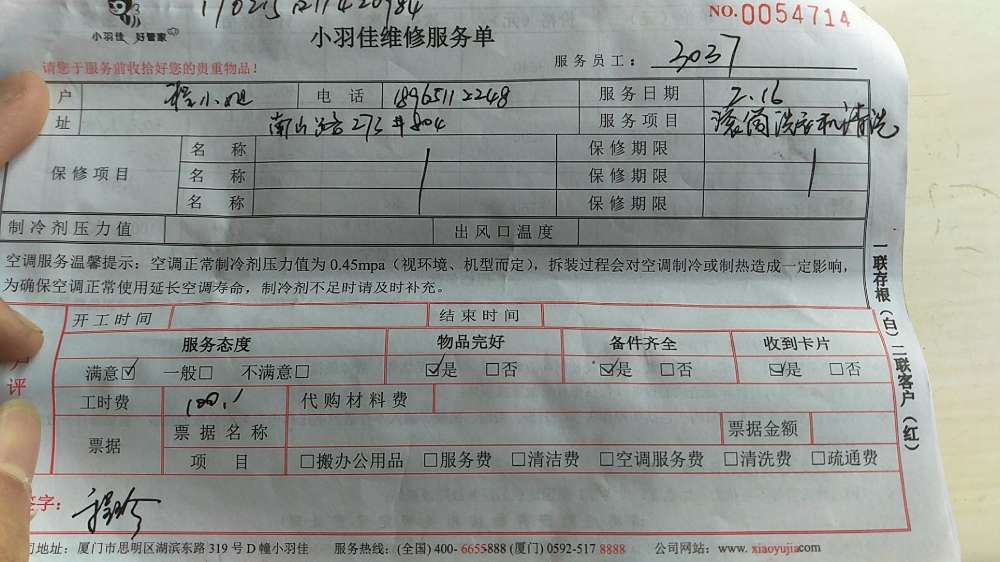 小羽佳 好管家
NO.0054714
小羽佳维修服务单
服务员工： 3037
请您于服务前收拾好您的贵重物品！
户 程小姐 电 话 18965112248 服务日期 2.16
址 南山路273#804 服务项目 滚筒洗衣机清洗
保修项目 名 称 保修期限
名 称 保修期限
名 称 保修期限
制冷剂压力值 出风口温度
空调服务温馨提示：空调正常制冷剂压力值为0.45mpa（视环境、机型而定），拆装过程会对空调制冷或制热造成一定影响，
为确保空调正常使用延长空调寿命，制冷剂不足时请及时补充。
开工时间 结束时间
服务态度 物品完好 备件齐全 收到卡片
满意☑ 一般□ 不满意□ ☑是 □否 ☑是 □否 ☑是 □否
户评
工时费 100 代购材料费
票据 票据名称 票据金额
项 目 □搬办公用品 □服务费 □清洁费 □空调服务费 □清洗费 □疏通费
签字：
司地址：厦门市思明区湖滨东路319号D幢小羽佳 服务热线：(全国) 400-6655888 (厦门) 0592-517 8888 公司网站：www. xiaoyujia.com
一联存根（白）二联客户（红）